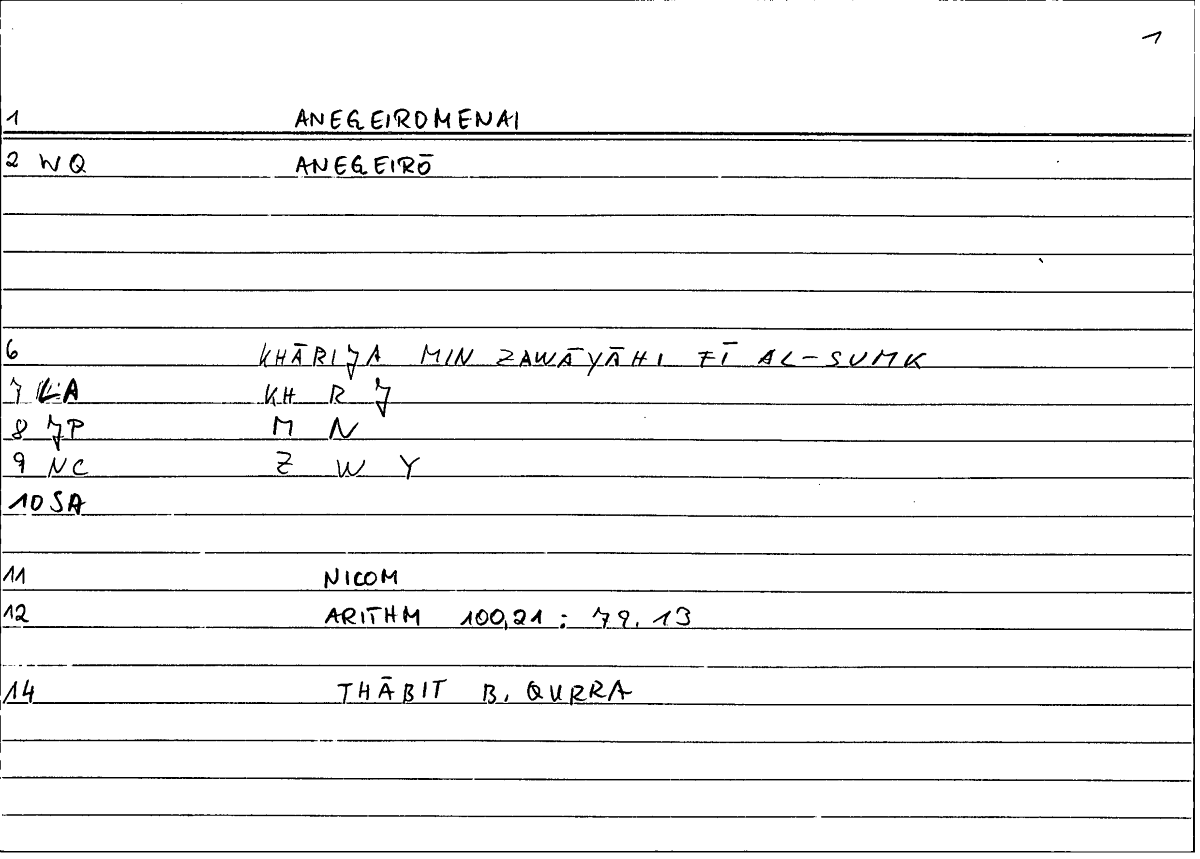 1
1 ANEGEIROMENAI
2 WQ ANEGEIRŌ
6 KHĀRIJA MIN ZAWĀYĀHI FĪ AL-SUMK
7 LA KH R J
8 JP M N
9 NC Z W Y
10 SA
11 NICOM
12 ARITHM 100,21 : 79.13
14 THĀBIT B. QURRA